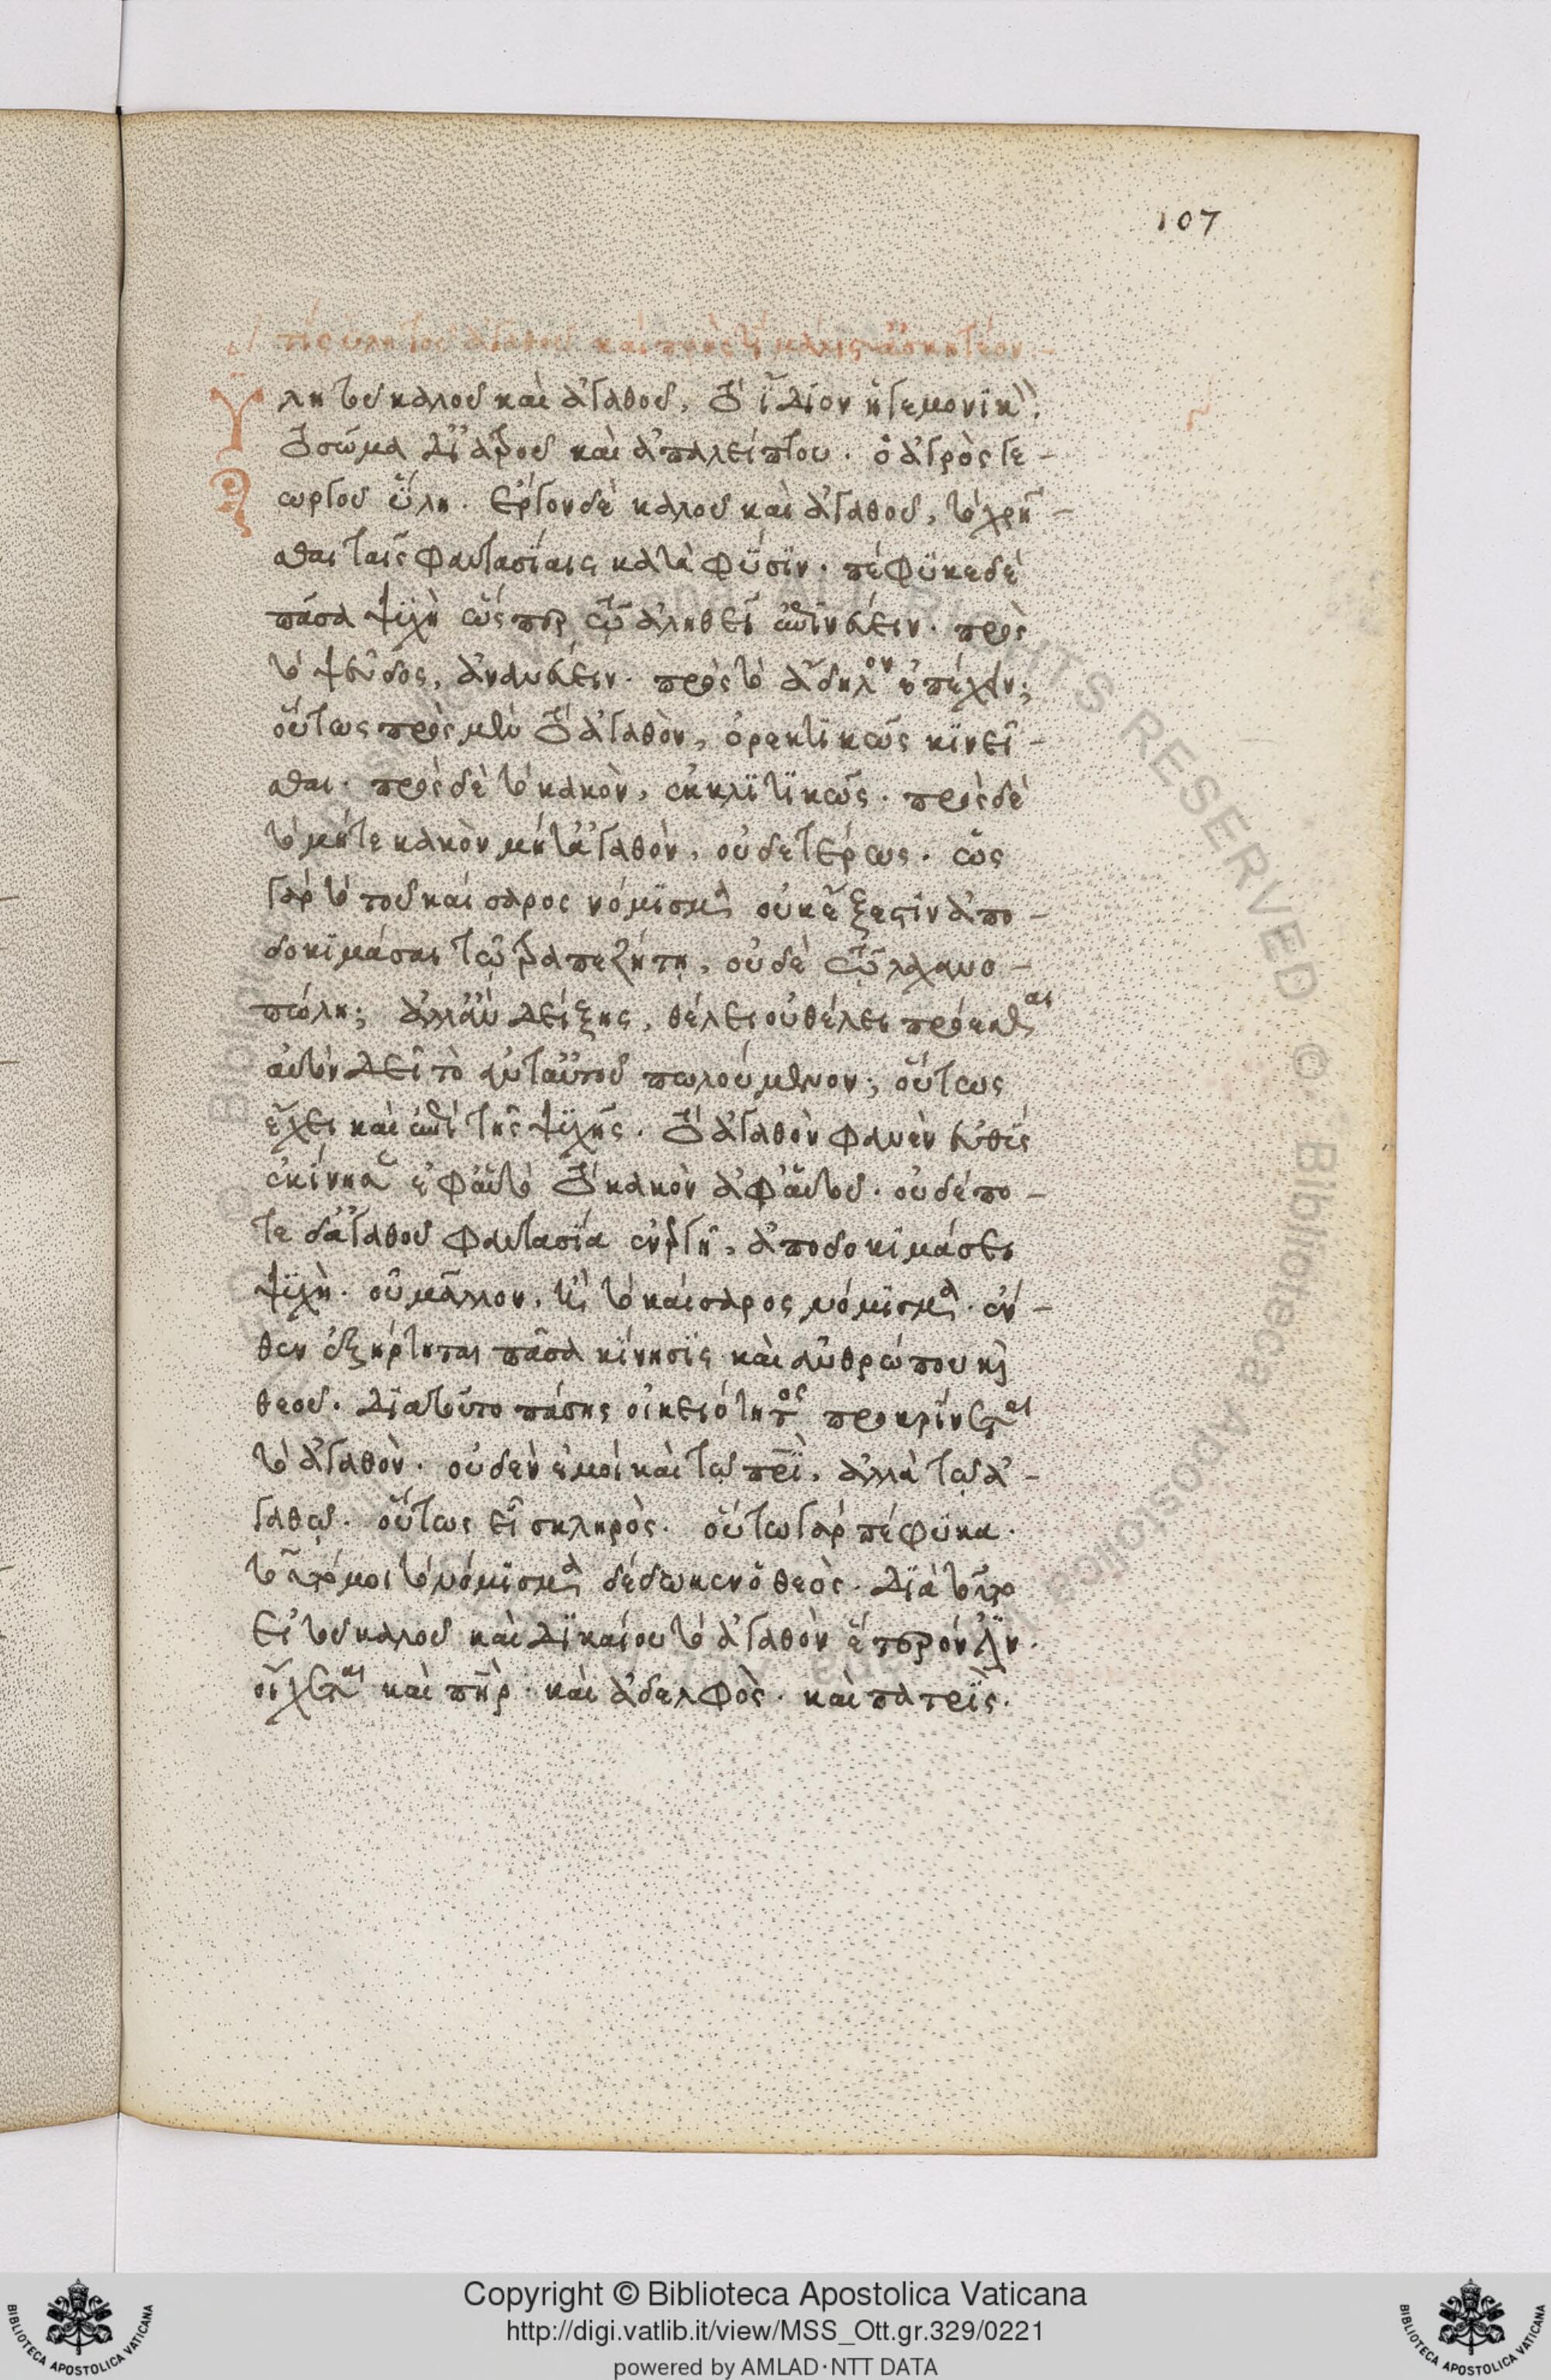 107
τίς ὕλη τοῦ ἀγαθοῦ καὶ πρὸς τί μάλιστα ἀσκητέον :-
Ὕλη τοῦ καλοῦ καὶ ἀγαθοῦ, τὸ ἴδιον ἡγεμονικ(όν).
τὸ σῶμα δὲ ἰατροῦ καὶ ἀπαλείπτου. ὁ ἀγρὸς γε-
ωργοῦ ὕλη. ἔργον δὲ καλοῦ καὶ ἀγαθοῦ, τὸ χρῆ-
σθαι ταῖς φαντασίαις κατὰ φύσιν. πέφυκε δὲ
πᾶσα ψυχὴ ὥσπερ τῶ ἀληθεῖ ἐπινεύειν. πρὸς
τὸ ψεῦδος, ἀνανεύειν. πρὸς τὸ ἄδηλον ἐπέχειν;
οὕτως πρὸς μὲν τὸ ἀγαθὸν, ὀρεκτικῶς κινεῖ-
σθαι. πρὸς δὲ τὸ κακὸν, ἐκκλιτικῶς. πρὸς δὲ
τὸ μήτε κακὸν μήτ' ἀγαθὸν, οὐδετέρως. ὡς
γὰρ τὸ τοῦ καίσαρος νόμισμα οὐκ ἔξεστιν ἀπο-
δοκιμάσαι τῶ τραπεζήτη, οὐδὲ τῶ λαχανο-
πώλη; ἀλλ' ἂν δείξης, θέλει οὐ θέλει προέσθαι
αὐτὸν δεῖ τὸ ἀντ' αὐτοῦ πωλούμενον; οὕτως
ἔχει καὶ ἐπὶ τῆς ψυχῆς. τὸ ἀγαθὸν φανὲν εὐθὺς
ἐκίνησεν ἐφ' αὑτὸ τὸ κακὸν ἀφ' αὑτοῦ. οὐδέπο-
τε δ' ἀγαθοῦ φαντασία ἐναργῆ, ἀποδοκιμάσει
ψυχὴ. οὐ μᾶλλον, ἢ τὸ καίσαρος νόμισμα. ἔν-
θεν ἐξήρτηται πᾶσα κίνησις καὶ ἀνθρώπου κ(αὶ)
θεοῦ. διὰ τοῦτο πάσης οἰκειότητος προκρίνεται
τὸ ἀγαθὸν. οὐδὲν ἐμοὶ καὶ τῶ πρὶ, ἀλλὰ τῶ ἀ-
γαθῶ. οὕτως εἶ σκληρὸς. οὕτω γὰρ πέφυκα.
τοῦτό μοι τὸ νόμισμα δέδωκεν ὁ θεὸς. διὰ τοῦτο
εἰ τοῦ καλοῦ καὶ δικαίου τὸ ἀγαθὸν ἕτερόν ἐστιν.
οἴχεται καὶ πὴρ. καὶ ἀδελφὸς. καὶ πατρὶς.
Copyright © Biblioteca Apostolica Vaticana
http://digi.vatlib.it/view/MSS_Ott.gr.329/0221
powered by AMLAD·NTT DATA